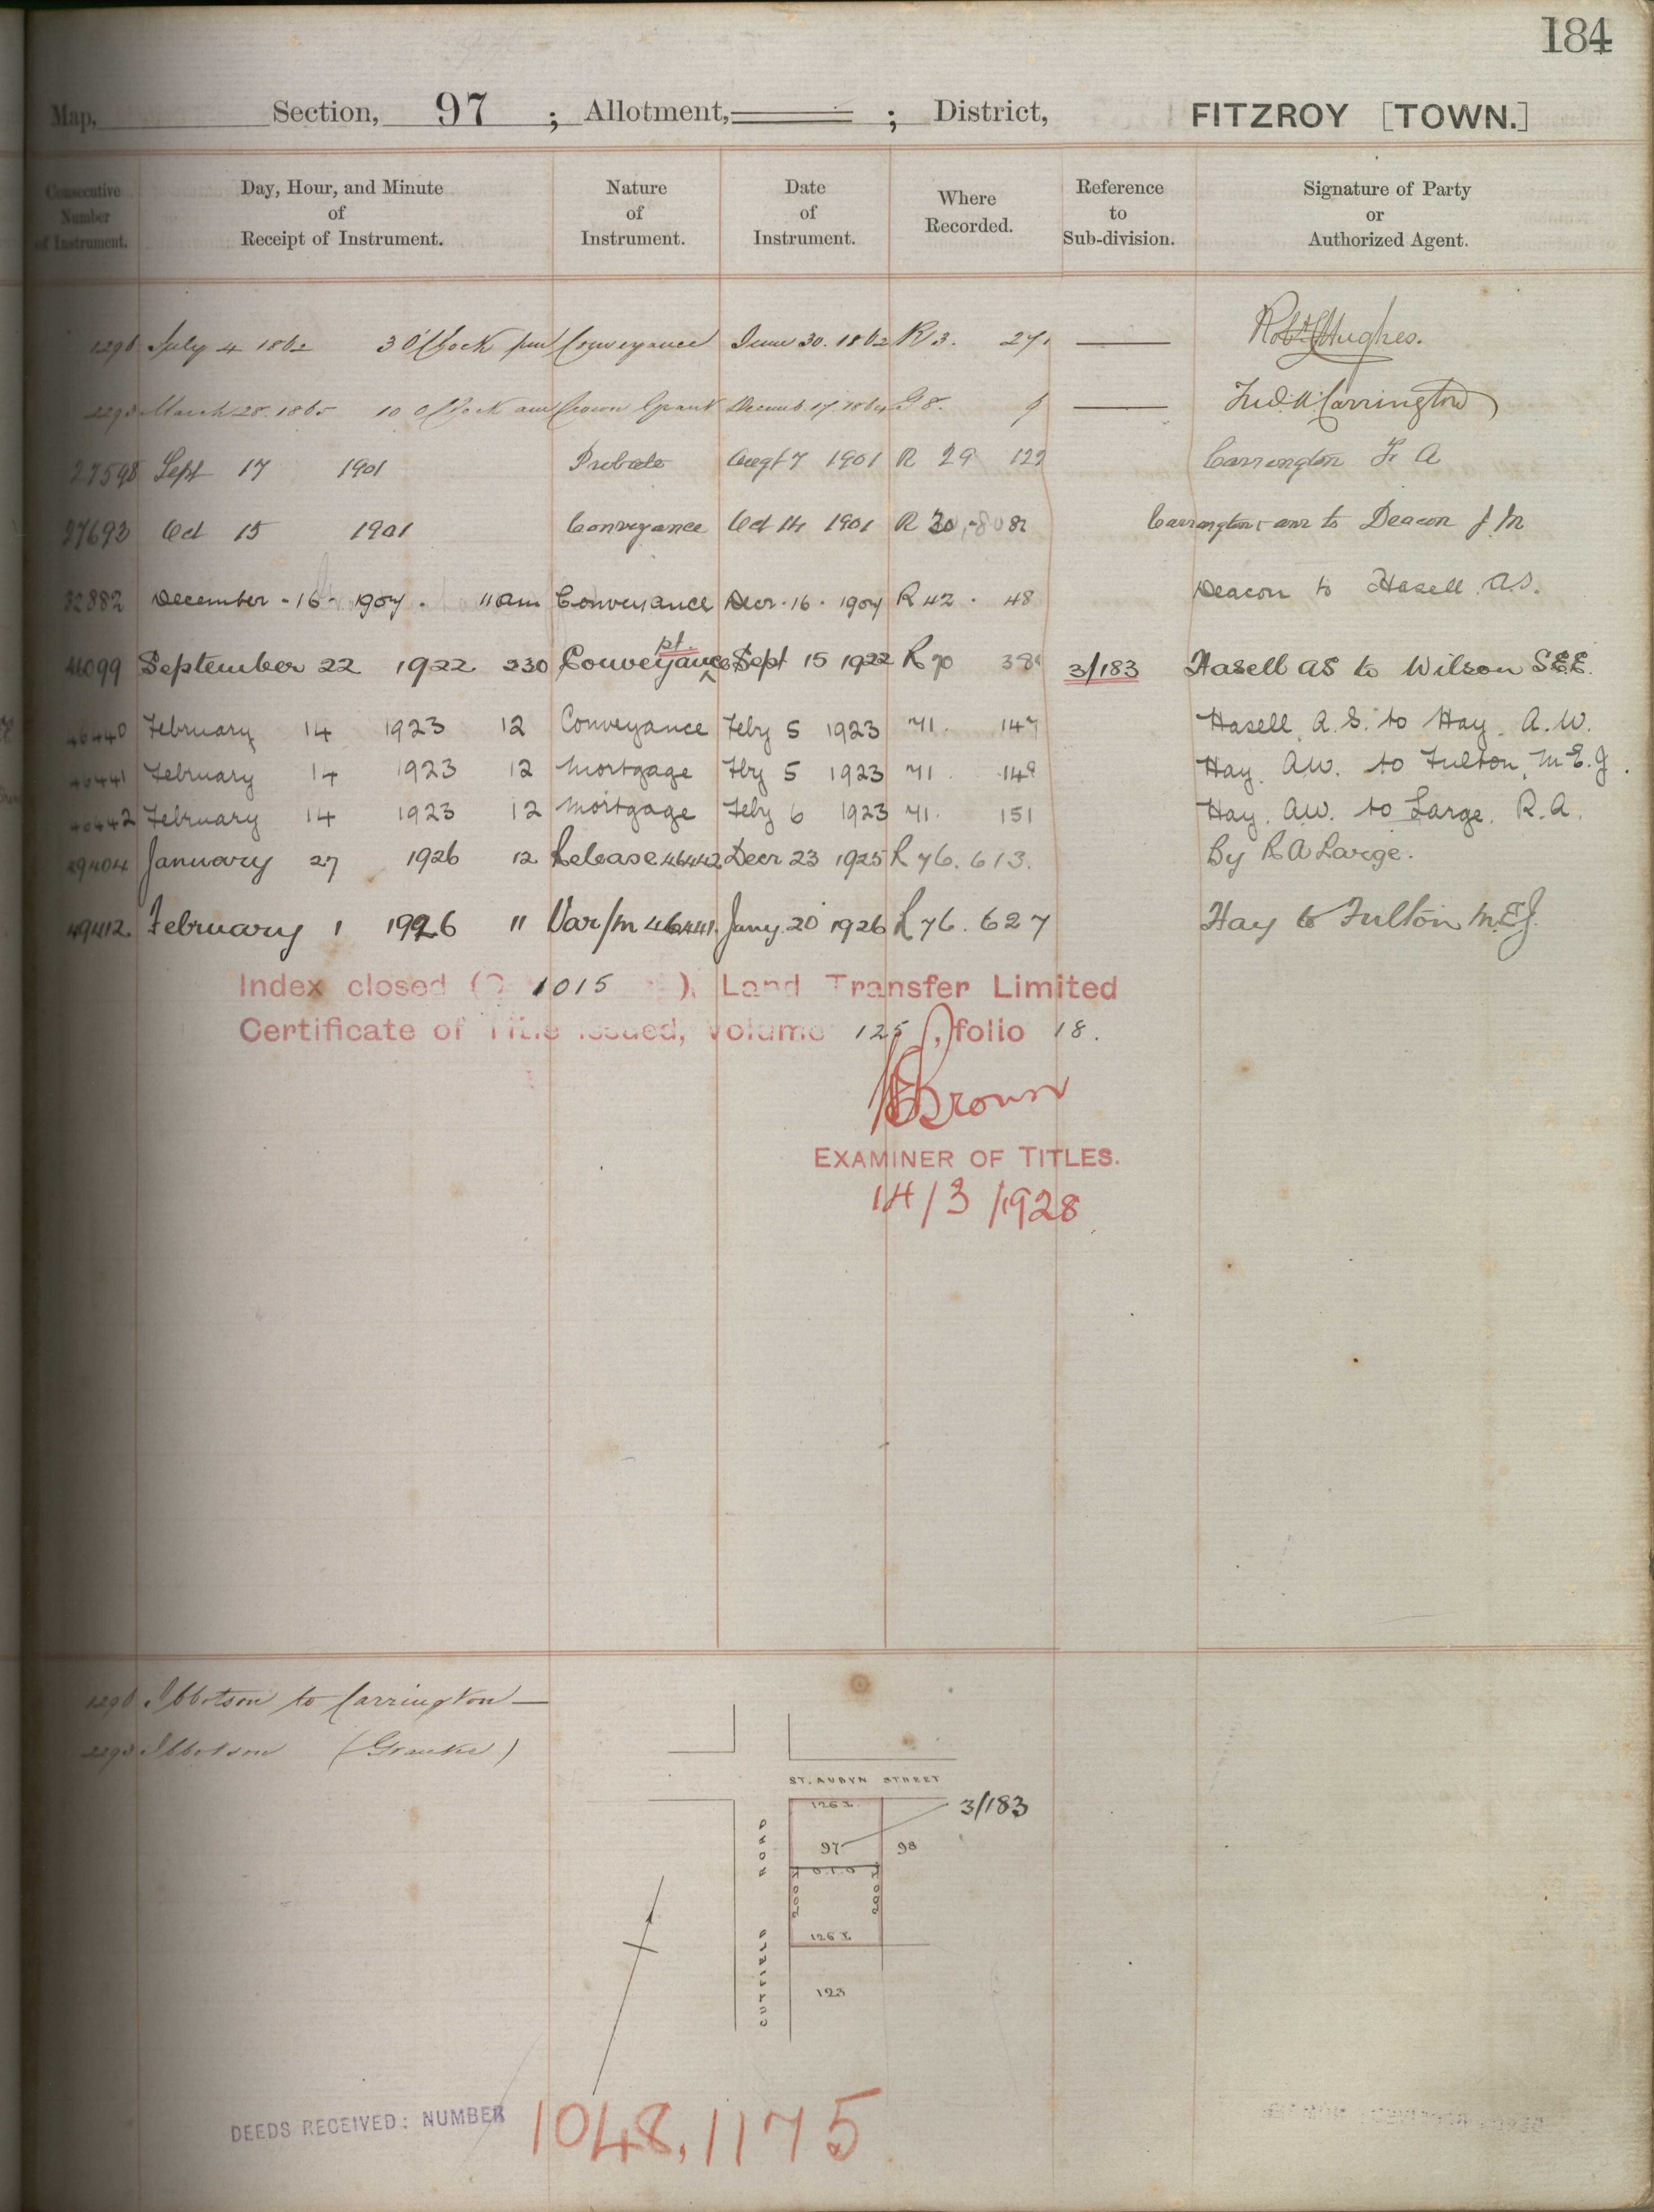 184
Map, Section, 97 ; Allotment, ; District, FITZROY [TOWN.]
Consecutive Number of Instrument.
Day, Hour, and Minute of Receipt of Instrument.
Nature of Instrument.
Date of Instrument.
Where Recorded.
Reference to Sub-division.
Signature of Party or Authorized Agent.
1296 July 4 1862 3 O'Clock pm Conveyance June 30. 1862 R13. 271 Hughes.
March 28. 1865 10 O'Clock am Crown Grant Decemb. 17. 1864 G 8. 9 Carrington
27598 Sept 17 1901 Probate Augt 7 1901 R 29 122 Carrington F A
27693 Oct 15 1901 Conveyance Oct 14 1901 R 30 82 Carrington & anr to Deacon J. M
32882 December - 16 - 1904. 11 am Conveyance Decr. 16. 1904 R 42. 48 Deacon to Hasell A.S.
46099 September 22 1922 230 Conveyance pt. Sept 15 1922 R 70 381 3/183 Hasell AS to Wilson S.E.E.
46440 February 14 1923 12 Conveyance Feby 5 1923 71. 147 Hasell, A. S. to Hay, A. W.
46441 February 14 1923 12 Mortgage Fby 5 1923 71. 149 Hay, A.W. to Fulton, M.E.J.
46442 February 14 1923 12 Mortgage Feby 6 1923 71. 151 Hay, A.W. to Large, R.A.
49404 January 27 1926 12 Release 46442 Decr 23 1925 R 76. 613. By R A Large.
49412 February 1 1926 11 Var/m 46441. Jany. 20 1926 R 76. 627 Hay to Fulton M.E.J.
Index closed ( 1015 ), Land Transfer Limited
Certificate of Title issued, Volume 125, folio 18.
Brown
EXAMINER OF TITLES.
14/3/1928
1296 Ibbotson to Carrington —
Ibbotson (Grantee)
ST. AUBYN STREET
126 L
3/183
97
98
0.1.0
200 L
200 L
126 L
123
CUTFIELD ROAD
DEEDS RECEIVED: NUMBER 1048, 1175